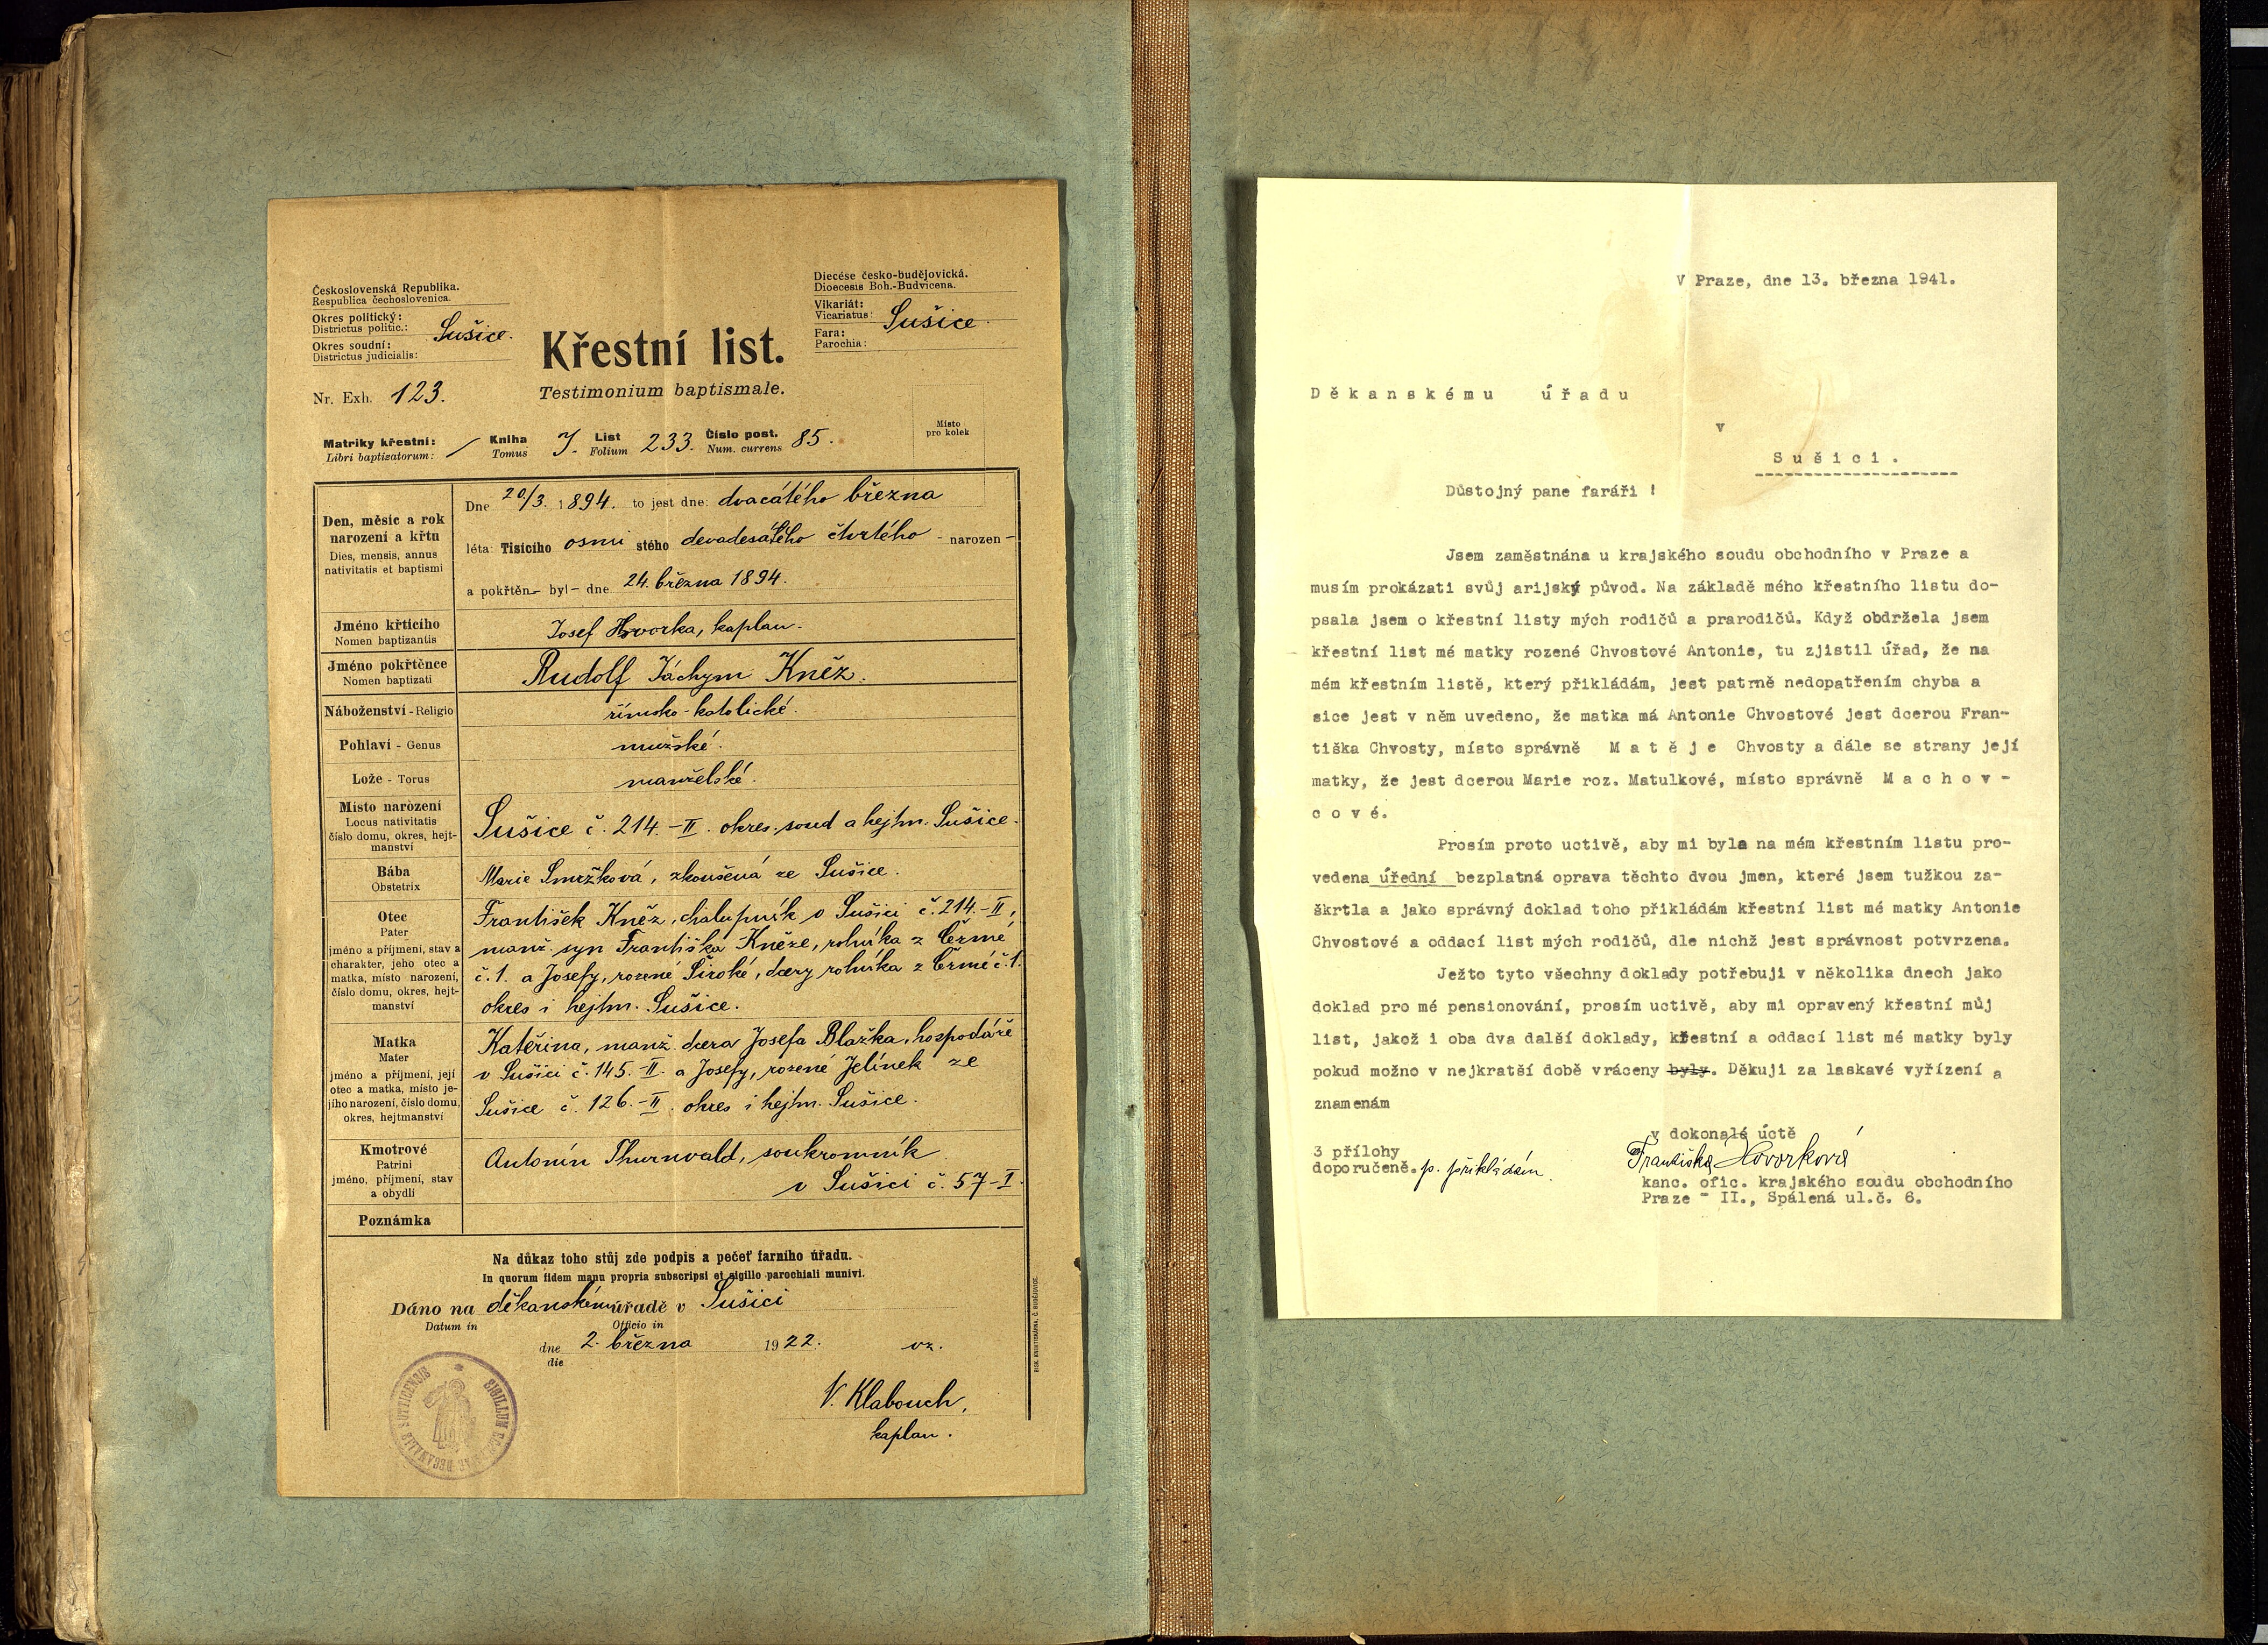 Československá Republika.
Respublica čechoslovenica.
Okres politický:
Districtus politic.:
Sušice.
Okres soudní:
Districtus judicialis:
Diecése česko-budějovická.
Dioecesis Boh.-Budvicena.
Vikariát:
Vicariatus:
Sušice.
Fara:
Parochia:
Křestní list.
Testimonium baptismale.
Nr. Exh. 123.
Místo
pro kolek
Matriky křestní: / Kniha J. List 233. Číslo post. 85.
Libri baptizatorum: Tomus Folium Num. currens
Den, měsíc a rok
narození a křtu
Dies, mensis, annus
nativitatis et baptismi
Dne 20/3. 1894. to jest dne: dvacátého března
léta: Tisícího osmi stého devadesátého čtvrtého - narozen -
a pokřtěn - byl - dne 24. března 1894.
Jméno křtícího
Nomen baptizantis
Josef Hovorka, kaplan.
Jméno pokřtěnce
Nomen baptizati
Rudolf Jáchym Kněz.
Náboženství - Religio
římsko-katolické.
Pohlaví - Genus
mužské.
Lože - Torus
manželské.
Místo narození
Locus nativitatis
číslo domu, okres, hejt-
manství
Sušice č. 214.-II. okres. soud a hejtm. Sušice.
Bába
Obstetrix
Marie Smržková, zkoušená ze Sušice.
Otec
Pater
jméno a příjmení, stav a
charakter, jeho otec a
matka, místo narození,
číslo domu, okres, hejt-
manství
František Kněz, chalupník v Sušici č. 214.-II,
manž. syn Františka Kněze, rolníka z Čermé
č. 1. a Josefy, rozené Široké, dcery rolníka z Čermé č. 1.
okres i hejtm. Sušice.
Matka
Mater
jméno a příjmení, její
otec a matka, místo je-
jího narození, číslo domu,
okres, hejtmanství
Kateřina, manž. dcera Josefa Blažka, hospodáře
v Sušici č. 145.-II. a Josefy, rozené Jelínek ze
Sušice č. 126.-II. okres i hejtm. Sušice.
Kmotrové
Patrini
jméno, příjmení, stav
a obydlí
Antonín Thurnvald, soukromník
v Sušici č. 57-I.
Poznámka
Na důkaz toho stůj zde podpis a pečeť farního úřadu.
In quorum fidem manu propria subscripsi et sigillo parochiali munivi.
Dáno na děkanském úřadě v Sušici
Datum in Officio in
dne 2. března 1922. vz.
die
V. Klabouch,
kaplan.
V Praze, dne 13. března 1941.
Děkanskému úřadu
v
Sušici.
Důstojný pane faráři !
Jsem zaměstnána u krajského soudu obchodního v Praze a
musím prokázati svůj arijský původ. Na základě mého křestního listu do-
psala jsem o křestní listy mých rodičů a prarodičů. Když obdržela jsem
křestní list mé matky rozené Chvostové Antonie, tu zjistil úřad, že na
mém křestním listě, který přikládám, jest patrně nedopatřením chyba a
sice jest v něm uvedeno, že matka má Antonie Chvostové jest dcerou Fran-
tiška Chvosty, místo správně M a t ě j e Chvosty a dále se strany její
matky, že jest dcerou Marie roz. Matulkové, místo správně M a c h o v -
c o v é.
Prosím proto uctivě, aby mi byla na mém křestním listu pro-
vedena úřední bezplatná oprava těchto dvou jmen, které jsem tužkou za-
škrtla a jako správný doklad toho přikládám křestní list mé matky Antonie
Chvostové a oddací list mých rodičů, dle nichž jest správnost potvrzena.
Ježto tyto všechny doklady potřebuji v několika dnech jako
doklad pro mé pensionování, prosím uctivě, aby mi opravený křestní můj
list, jakož i oba dva další doklady, křestní a oddací list mé matky byly
pokud možno v nejkratší době vráceny byly. Děkuji za laskavé vyřízení a
znamenám
v dokonalé úctě
3 přílohy
doporučeně. p. přikládám.
Františka Hovorková
kanc. ofic. krajského soudu obchodního
Praze - II., Spálená ul.č. 6.